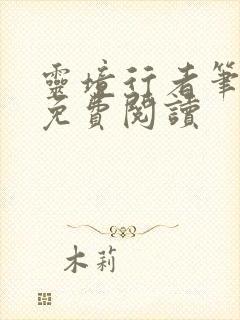 靈境行者筆
免費閱讀
木莉